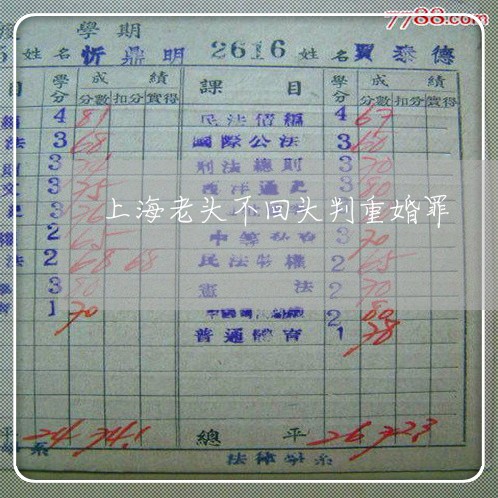 7788.com
學期
姓名 忻鼎明 2616 姓名 賈泰德
目 學分 成績 課目 學分 成績
分數 扣分 實得 分數 扣分 實得
4 81 民法債編 4 67
法 3 68 國際公法 3 60
3 刑法總則 3 70
3 75 西洋通史 3 80
3
上海老头不回头判重婚罪
2 65 3 70
法 2 68 68 民法物權 2 65
3 80 憲法 2 70
1 70 2 80
普通體育 1 78
平 24 74.1 總平 26 72.3
系 法律學系